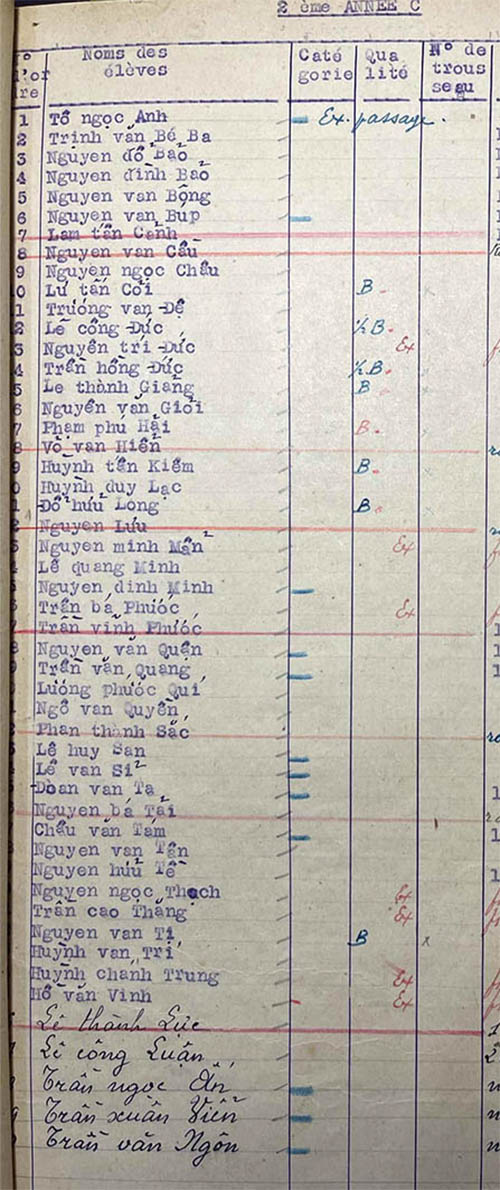 2 ème ANNEE C
N° d'or dre Noms des élèves Caté gorie Qua lité N° de trous seau
1 Tô ngọc Anh Ex. passage.
2 Trinh văn Bé Ba
3 Nguyen đổ Bảo
4 Nguyen đình Bảo
5 Nguyen van Bông
6 Nguyen van Búp
7 Lam tấn Cảnh
8 Nguyen van Cầu
9 Nguyen ngọc Chẩu
0 Lư tấn Cối B.
1 Trương van Đê
2 Lê công Đức ½ B.
3 Nguyễn tri Đức Ex
4 Trần hồng Đức ½ B.
5 Le thành Giang B
6 Nguyễn văn Giỏi
7 Phạm phú Hải B.
8 Võ van Hiển
9 Huỳnh tấn Kiểm B.
0 Huỳnh duy Lạc
1 Đổ hửu Long B.
2 Nguyen Lưu
3 Nguyen minh Mẩn Ex
Lê quang Minh
Nguyen dinh Minh
Trần bá Phước Ex
Trần vĩnh Phước
8 Nguyen văn Quận
9 Trần văn Quang
Lương phước Qui
Ngô van Quyền
Phan thành Sắc
Lê huy San
Lê van Sĩ
Đoan van Ta
Nguyen bá Tài
Châu văn Tám
Nguyen van Tấn
Nguyen hửu Tề
Nguyen ngọc Thạch Ex
Trần cao Thắng Ex
Nguyen van Tí B x
Huỳnh van Tri
Huỳnh chanh Trung Ex
Hồ văn Vinh Ex
Lê thành Lực
Lê công Luận
Trần ngọc Ân
Trần xuân Viễn
Trần văn Ngôn